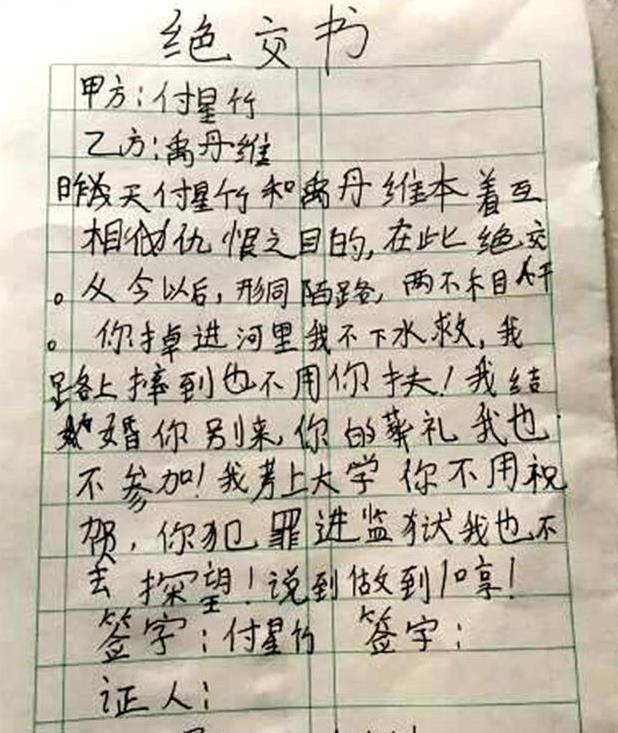 绝交书
甲方：付星竹
乙方：禹丹维
昨天付星竹和禹丹维本着互
相仇恨之目的，在此绝交
。从今以后，形同陌路，两不相干
。你掉进河里我不下水救，我
路上摔到也不用你扶！我结
婚你别来，你的葬礼我也
不参加！我考上大学你不用祝
贺，你犯罪进监狱我也不
去探望！说到做到！哼！
签字：付星竹 签字：
证人：